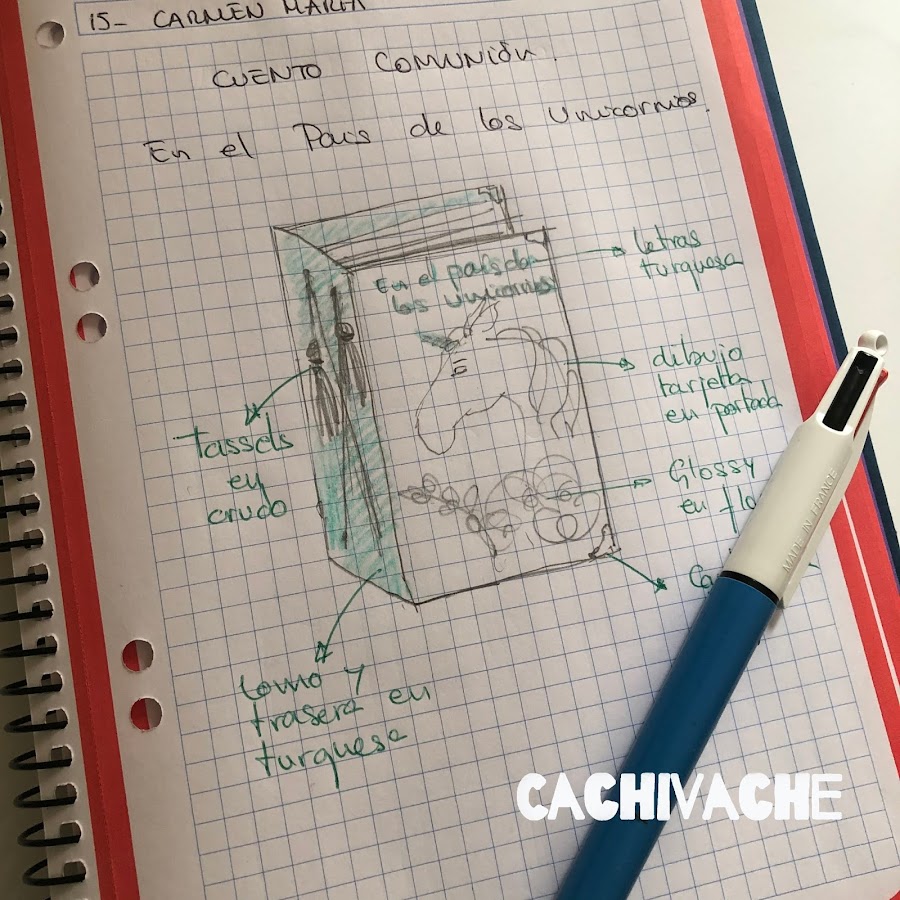 15- CARMEN MARÍA
CUENTO COMUNIÓN.
En el País de los Unicornios.
En el país de
los Unicornios
letras
turquesa
dibujo
tarjeta
en portada
Glossy
en
tassels
en
crudo
lomo y
trasera en
turquesa
MADE IN FRANCE
CACHIVACHE